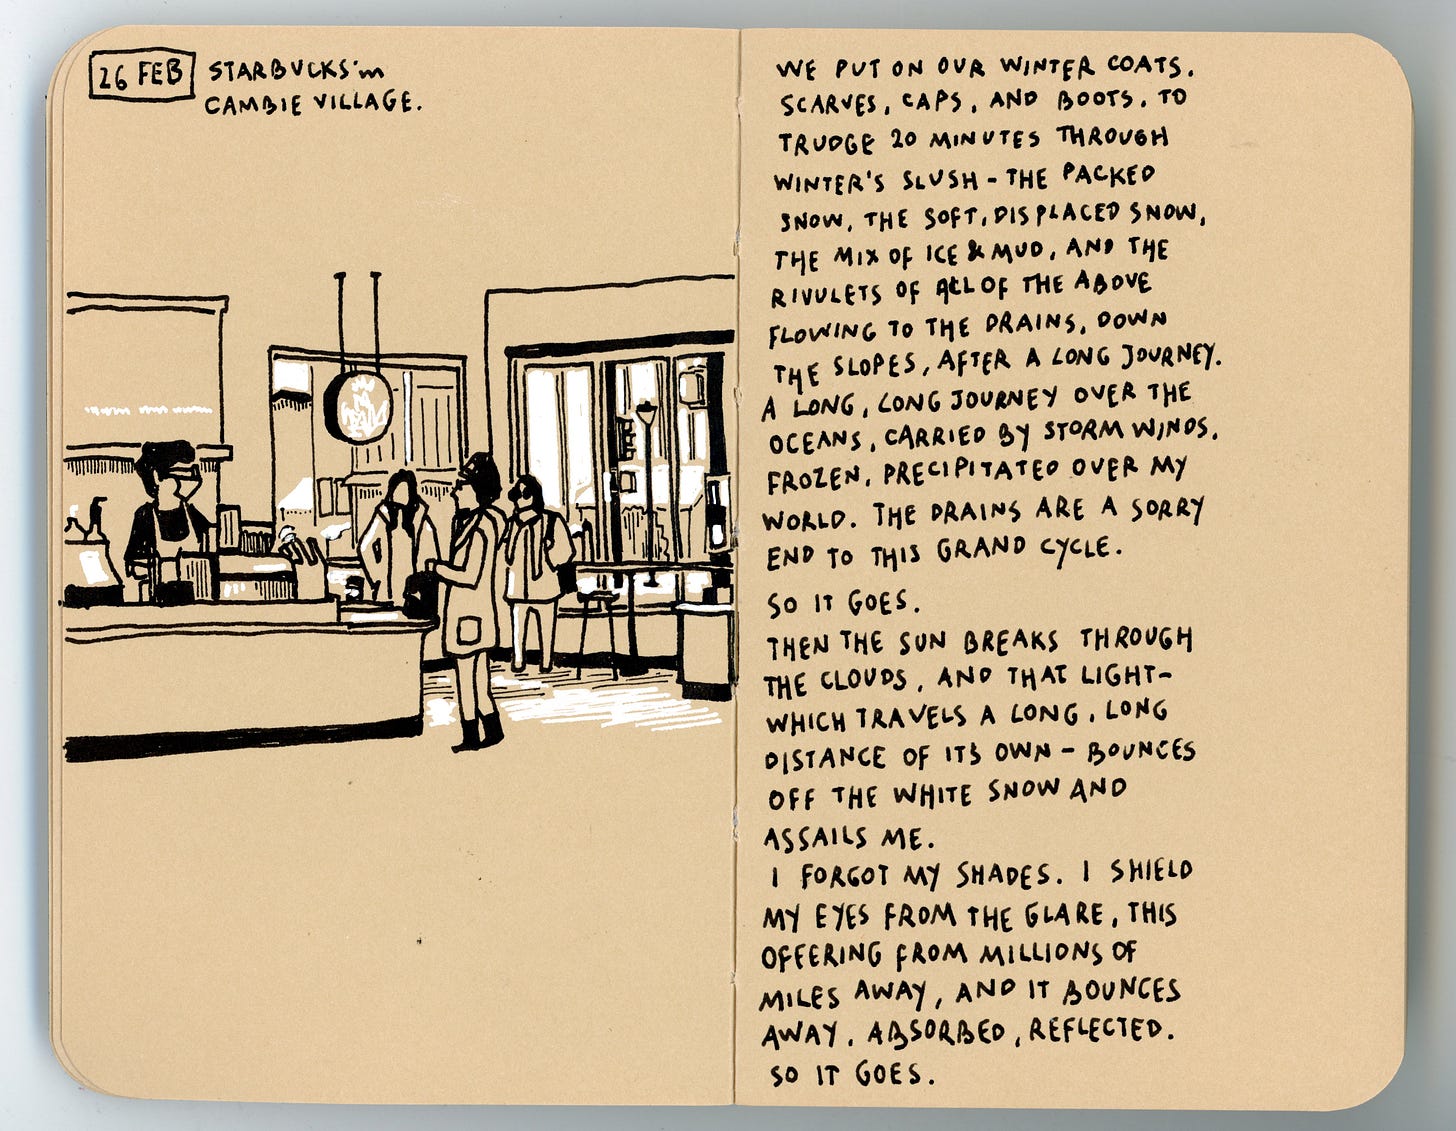 26 FEB
STARBUCKS'm
CAMBIE VILLAGE.
WE PUT ON OUR WINTER COATS,
SCARVES, CAPS, AND BOOTS, TO
TRUDGE 20 MINUTES THROUGH
WINTER'S SLUSH - THE PACKED
SNOW, THE SOFT, DISPLACED SNOW,
THE MIX OF ICE & MUD, AND THE
RIVULETS OF ALL OF THE ABOVE
FLOWING TO THE DRAINS, DOWN
THE SLOPES, AFTER A LONG JOURNEY.
A LONG, LONG JOURNEY OVER THE
OCEANS, CARRIED BY STORM WINDS,
FROZEN, PRECIPITATED OVER MY
WORLD. THE DRAINS ARE A SORRY
END TO THIS GRAND CYCLE.
SO IT GOES.
THEN THE SUN BREAKS THROUGH
THE CLOUDS, AND THAT LIGHT-
WHICH TRAVELS A LONG, LONG
DISTANCE OF ITS OWN - BOUNCES
OFF THE WHITE SNOW AND
ASSAILS ME.
I FORGOT MY SHADES. I SHIELD
MY EYES FROM THE GLARE, THIS
OFFERING FROM MILLIONS OF
MILES AWAY, AND IT BOUNCES
AWAY, ABSORBED, REFLECTED.
SO IT GOES.